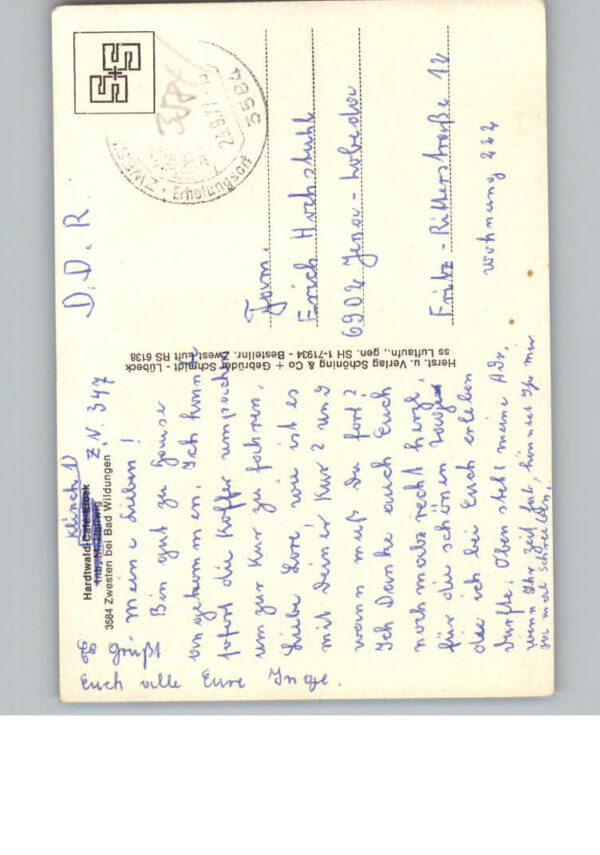 Klinik
Z. N. 347
Hardtwald-Cafe
3584 Zwesten bei Bad Wildungen
Meine Lieben!
Bin gut zu Hause
angekommen. Ich konnte
sofort die Koffer umpacken
um zur Kur zu fahren.
Liebe Lore, wie ist es
mit Deiner Kur? und
wann mußt Du fort?
Ich Danke auch Euch
nochmals recht herzl.
für die schönen Tage
die ich bei Euch erleben
durfte. Oben steht meine Adr.
wenn Ihr Zeit habt könntet Ihr mir
ja mal schreiben,
Es Grüßt
Euch alle Eure Inge.
Herst. u. Verlag Schöning & Co + Gebrüder Schmidt - Lübeck
ss Luftaufn., gen. SH 1-71934 - Bestellnr. Zwest Luft RS 6138
D. D. R.
3584
ZWES
Erholungsort
5584
Fam.
Erich Hochstuhl
6902 Jena-Lobeda
Fritz-Ritterstraße 12
Wohnung 222